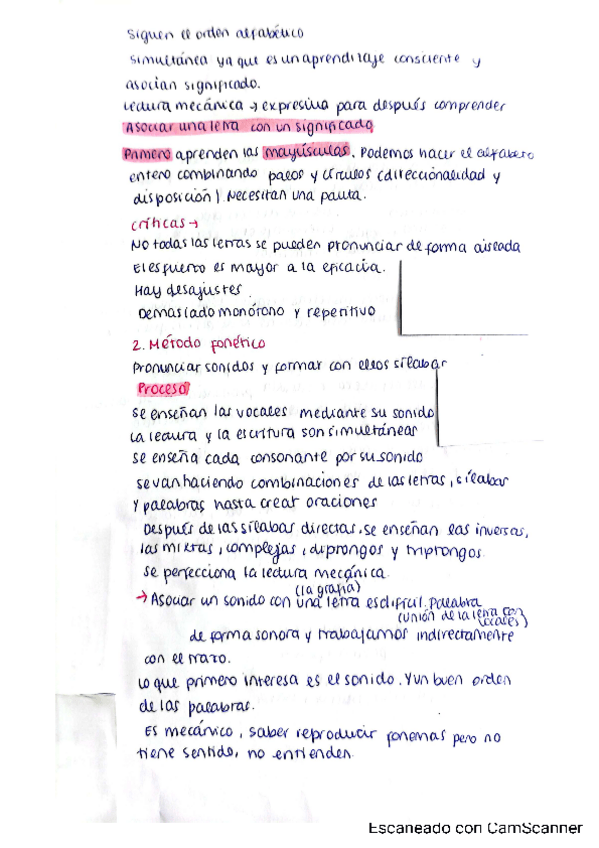 siguen el orden alfabético
simultánea ya que es un aprendizaje consciente y
asocian significado.
Lectura mecánica → expresiva para después comprender
Asociar una letra con un significado
Primero aprenden las mayúsculas. Podemos hacer el alfabeto
entero combinando palos y círculos (direccionalidad y
disposición) Necesitan una pauta.
críticas →
No todas las letras se pueden pronunciar de forma aislada
El esfuerzo es mayor a la eficacia.
Hay desajustes
Demasiado monótono y repetitivo
2. Método fonético
pronunciar sonidos y formar con ellos sílabas
Proceso
se enseñan las vocales mediante su sonido
La lectura y la escritura son simultáneas
se enseña cada consonante por su sonido
se van haciendo combinaciones de las letras, sílabas
y palabras hasta crear oraciones
Después de las sílabas directas, se enseñan las inversas,
las mixtas, complejas, diptongos y triptongos.
se perfecciona la lectura mecánica.
(la grafía)
→ Asociar un sonido con una letra es difícil. Palabra
(unión de la letra con
vocales)
de forma sonora y trabajamos indirectamente
con el trazo.
Lo que primero interesa es el sonido. Y un buen orden
de las palabras.
Es mecánico, saber reproducir fonemas pero no
tiene sentido, no entienden.
Escaneado con CamScanner